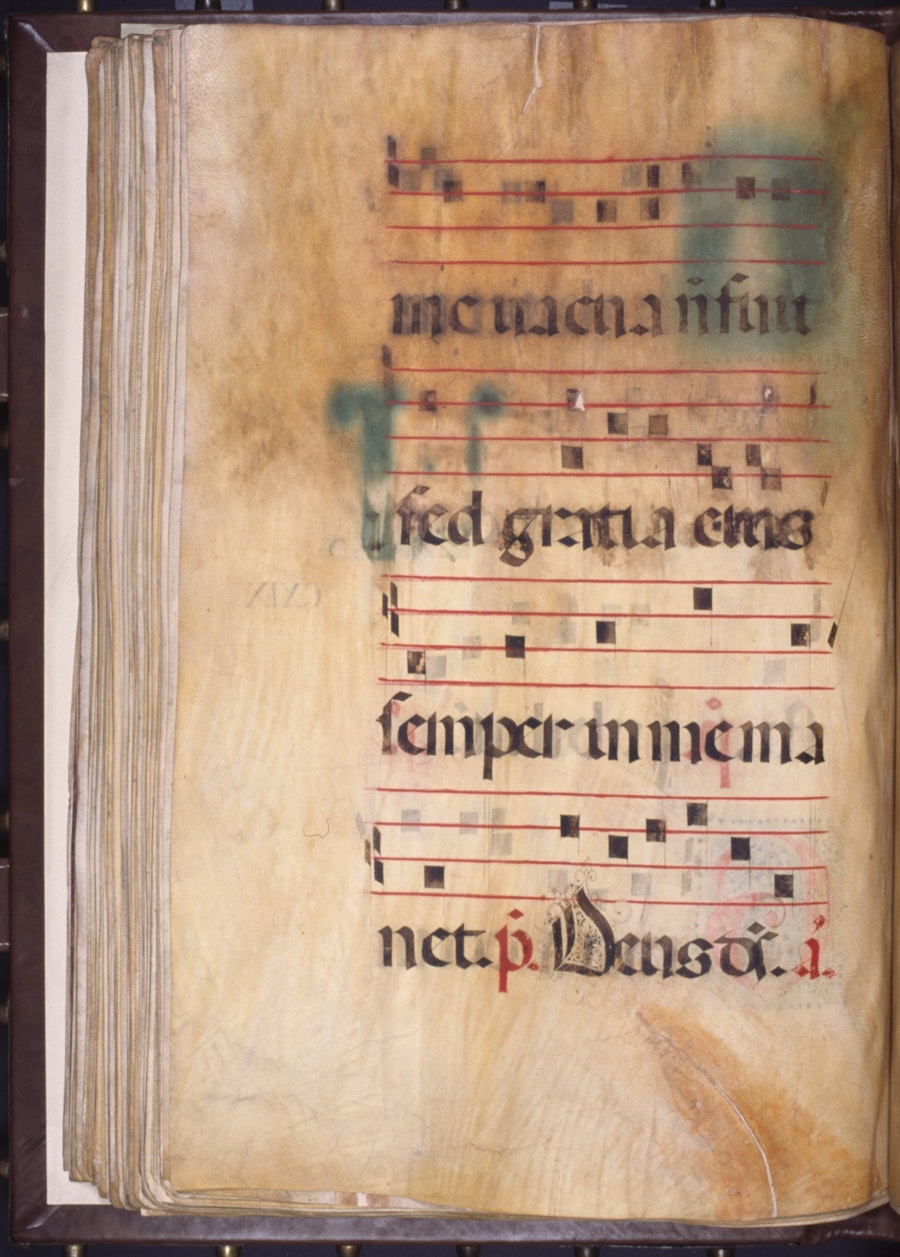 me vacua ñ fuit
sed gratia eius
semper in me ma
net. p̄. Deus ds̄. ā.